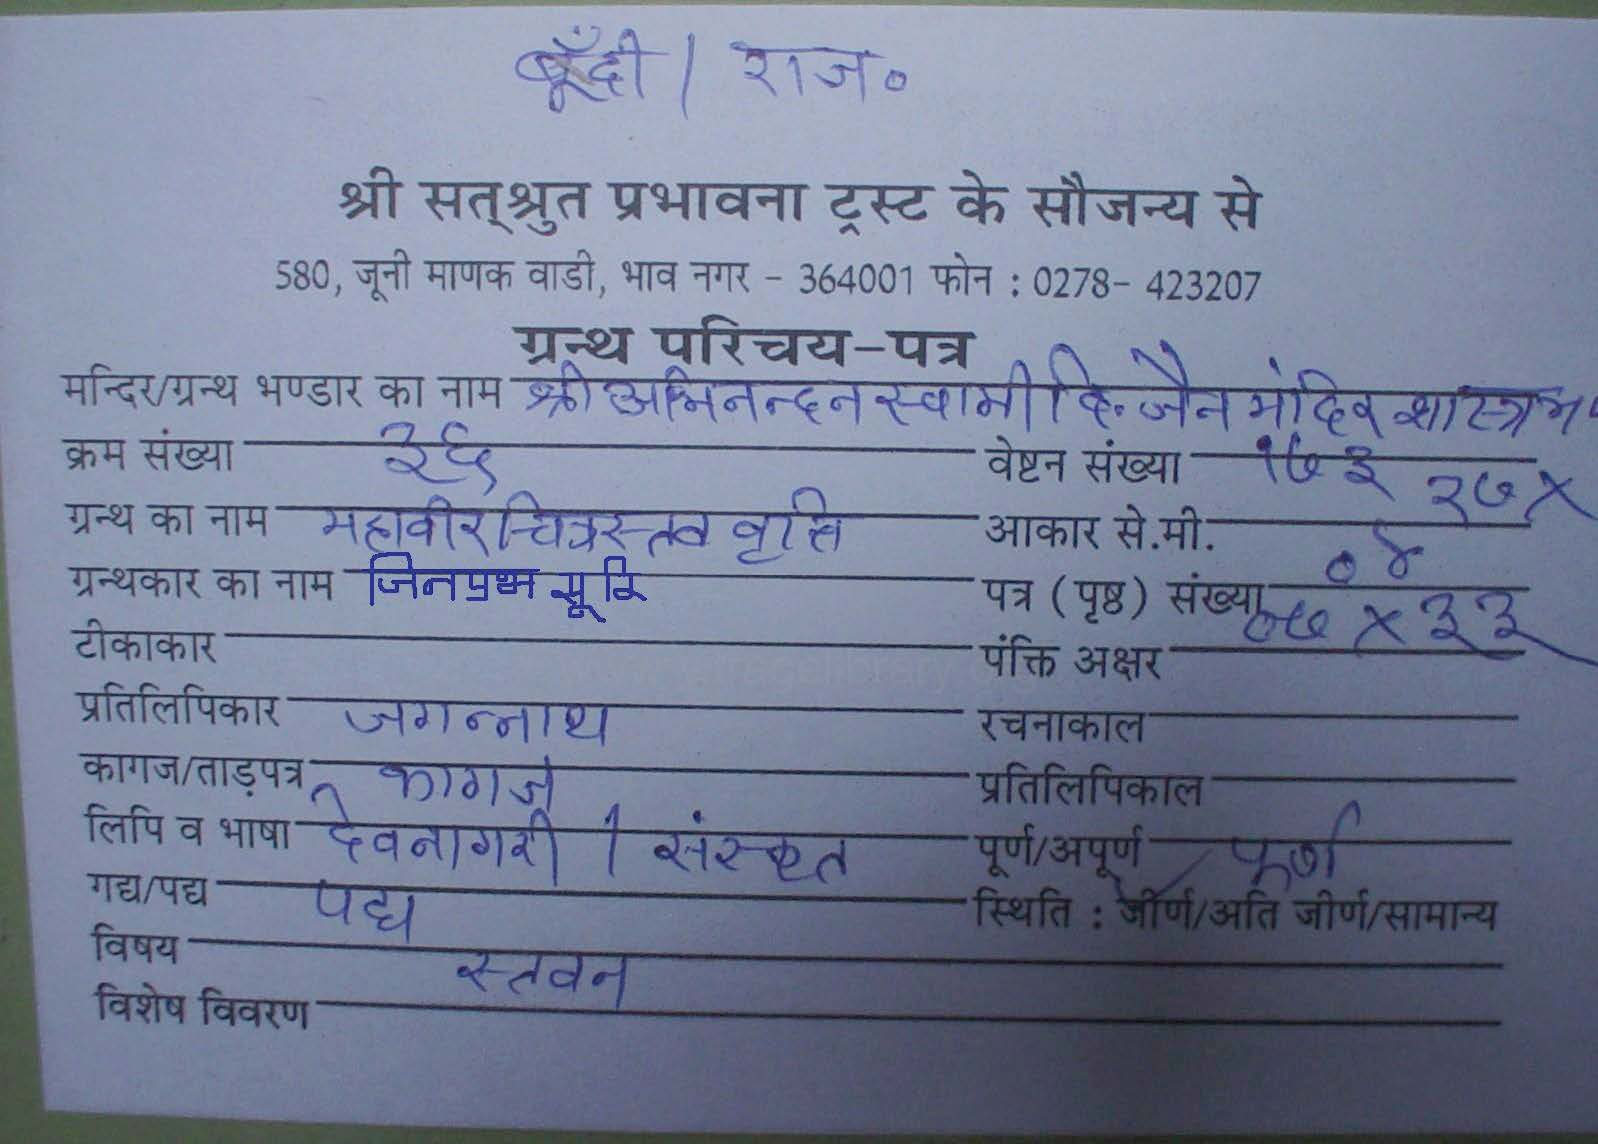 बूँदी / राज०
श्री सत्श्रुत प्रभावना ट्रस्ट के सौजन्य से
580, जूनी माणक वाडी, भाव नगर - 364001 फोन : 0278- 423207
ग्रन्थ परिचय-पत्र
मन्दिर/ग्रन्थ भण्डार का नाम श्री अभिनन्दन स्वामी दि. जैन मंदिर शास्त्र भ
क्रम संख्या ३६ वेष्टन संख्या १७३
ग्रन्थ का नाम महावीर चित्रस्तव वृत्ति आकार से.मी. २७ X
ग्रन्थकार का नाम जिनप्रभ सूरि पत्र (पृष्ठ) संख्या ०४
टीकाकार पंक्ति अक्षर X ३३
प्रतिलिपिकार जगन्नाथ रचनाकाल
कागज/ताड़पत्र कागज प्रतिलिपिकाल
लिपि व भाषा देवनागरी / संस्कृत पूर्ण/अपूर्ण पूर्ण
गद्य/पद्य पद्य स्थिति : जीर्ण/अति जीर्ण/सामान्य
विषय स्तवन
विशेष विवरण